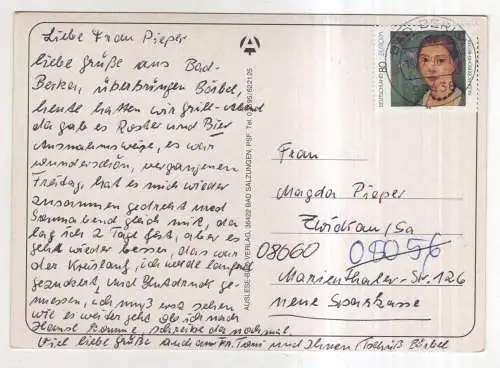 Liebe Frau Pieper
liebe Grüße aus Bad-
Berka, überbringen Bärbel,
heute hatten wir Grill-Abend
da gab es Roster und Bier
Ausnahmsweise, es war
wunderschön, vergangenen
Freitag, hat es mich wieder
zusammen gedreht und
Sonnabend gleich mit, da
lag ich 2 Tage fest, aber es
geht wieder besser, das war
der Kreislauf, ich werde laufend
gezuckert, und Blutdruck ge-
messen, ich muß erst sehen
wie es weiter geht ob ich nach
Hause komme, schreibe da nochmal.
Viel liebe Grüße auch am Fr. Toni und Ihnen, Tschüß Bärbel
AUSLESE-BILD-VERLAG, 36422 BAD SALZUNGEN, PSF Tel. 03695/622125
BAD BERKA
DEUTSCHLAND 80
EUROPA
Frau
Magda Pieper
Zwickau/Sa
08060 08056
Marienthaler-Str. 126
neue Sparkasse